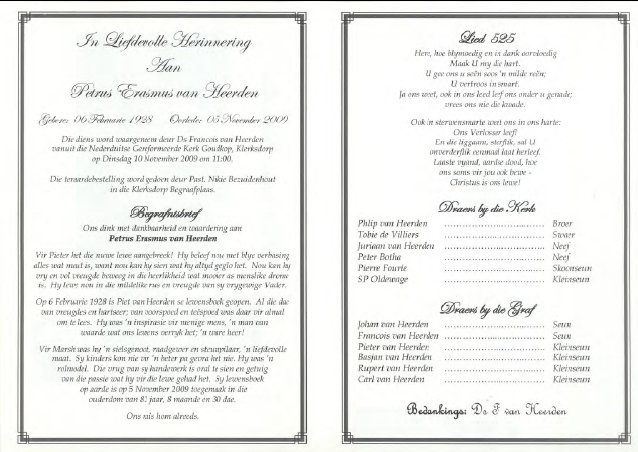 In Liefdevolle Herinnering
Aan
Petrus Erasmus van Heerden
Gebore: 06 Februarie 1928 Oorlede: 05 November 2009
Die diens word waargeneem deur Ds Francois van Heerden
vanuit die Nederduitse Gereformeerde Kerk Goudkop, Klerksdorp
op Dinsdag 10 November 2009 om 11:00.
Die teraardebestelling word gedoen deur Past. Nikie Bezuidenhout
in die Klerksdorp Begraafplaas.
Begrafnisbrief
Ons dink met dankbaarheid en waardering aan
Petrus Erasmus van Heerden
Vir Pieter het die nuwe lewe aangebreek! Hy beleef nou met blye verbasing
alles wat moet is, want nou kan hy sien wat hy altyd geglo het. Nou kan hy
vry en vol vreugde beweeg in die heerlikheid wat mooier as menslike drome
is. Hy lewe nou in die middelike rus en vreugde van sy vrygewige Vader.
Op 6 Februarie 1928 is Piet van Heerden se lewensboek geopen. Al die dae
van vreugdes en hartseer; van voorspoed en teëspoed was daar vir almal
om te lees. Hy was 'n inspirasie vir menige mens, 'n man van
waarde wat ons lewens verryk het; 'n ware heer!
Vir Marsie was hy 'n sielsgenoot, raadgewer en steunpilaar, 'n liefdevolle
maat. Sy kinders kon nie vir 'n beter pa gevra het nie. Hy was 'n
rolmodel. Die vrug van sy handewerk is oral te sien en getuig
van die passie wat hy vir die lewe gehad het. Sy lewensboek
op aarde is op 5 November 2009 toegemaak in die
ouderdom van 81 jaar, 8 maande en 30 dae.
Ons mis hom alreeds.
Lied 525
Here, hoe blymoedig en is dank oorvloedig
Maak U my die hart.
U gee ons u seën soos 'n milde reën;
U vertroos in smart.
Ja ons weet, ook in ons leed leef ons onder u genade;
vrees ons nie die kwade.
Ook in sterwensmarte weet ons in ons harte:
Ons Verlosser leef!
En die liggaam, sterflik, sal U
onverderflik eenmaal laat herleef.
Laaste vyand, aardse dood, hoe
ons soms vir jou ook bewe -
Christus is ons lewe!
Draers by die Kerk
Phlip van Heerden ........................ Broer
Tobie de Villiers ........................ Swaer
Juriaan van Heerden ........................ Neef
Peter Botha ........................ Neef
Pierre Fourie ........................ Skoonseun
SP Oldewage ........................ Kleinseun
Draers by die Graf
Johan van Heerden ........................ Seun
Francois van Heerden ........................ Seun
Pieter van Heerden ........................ Kleinseun
Basjan van Heerden ........................ Kleinseun
Rupert van Heerden ........................ Kleinseun
Carl van Heerden ........................ Kleinseun
Bedankings: Ds F van Heerden